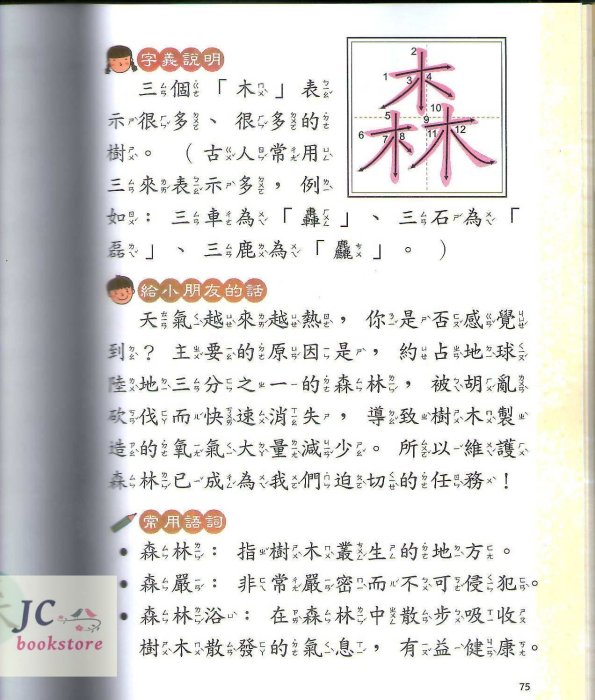 字義說明
三個「木」表
示很多、很多的
樹。（古人常用
三來表示多，例
如：三車為「轟」、三石為「
磊」、三鹿為「麤」。）
2
1 3 4
10
5 9
6 7 8 11 12
森
給小朋友的話
天氣越來越熱，你是否感覺
到？主要的原因是，約占地球
陸地三分之一的森林，被胡亂
砍伐而快速消失，導致樹木製
造的氧氣大量減少。所以維護
森林已成為我們迫切的任務！
常用語詞
森林：指樹木叢生的地方。
森嚴：非常嚴密而不可侵犯。
森林浴：在森林中散步吸收
樹木散發的氣息，有益健康。
JC
bookstore
75